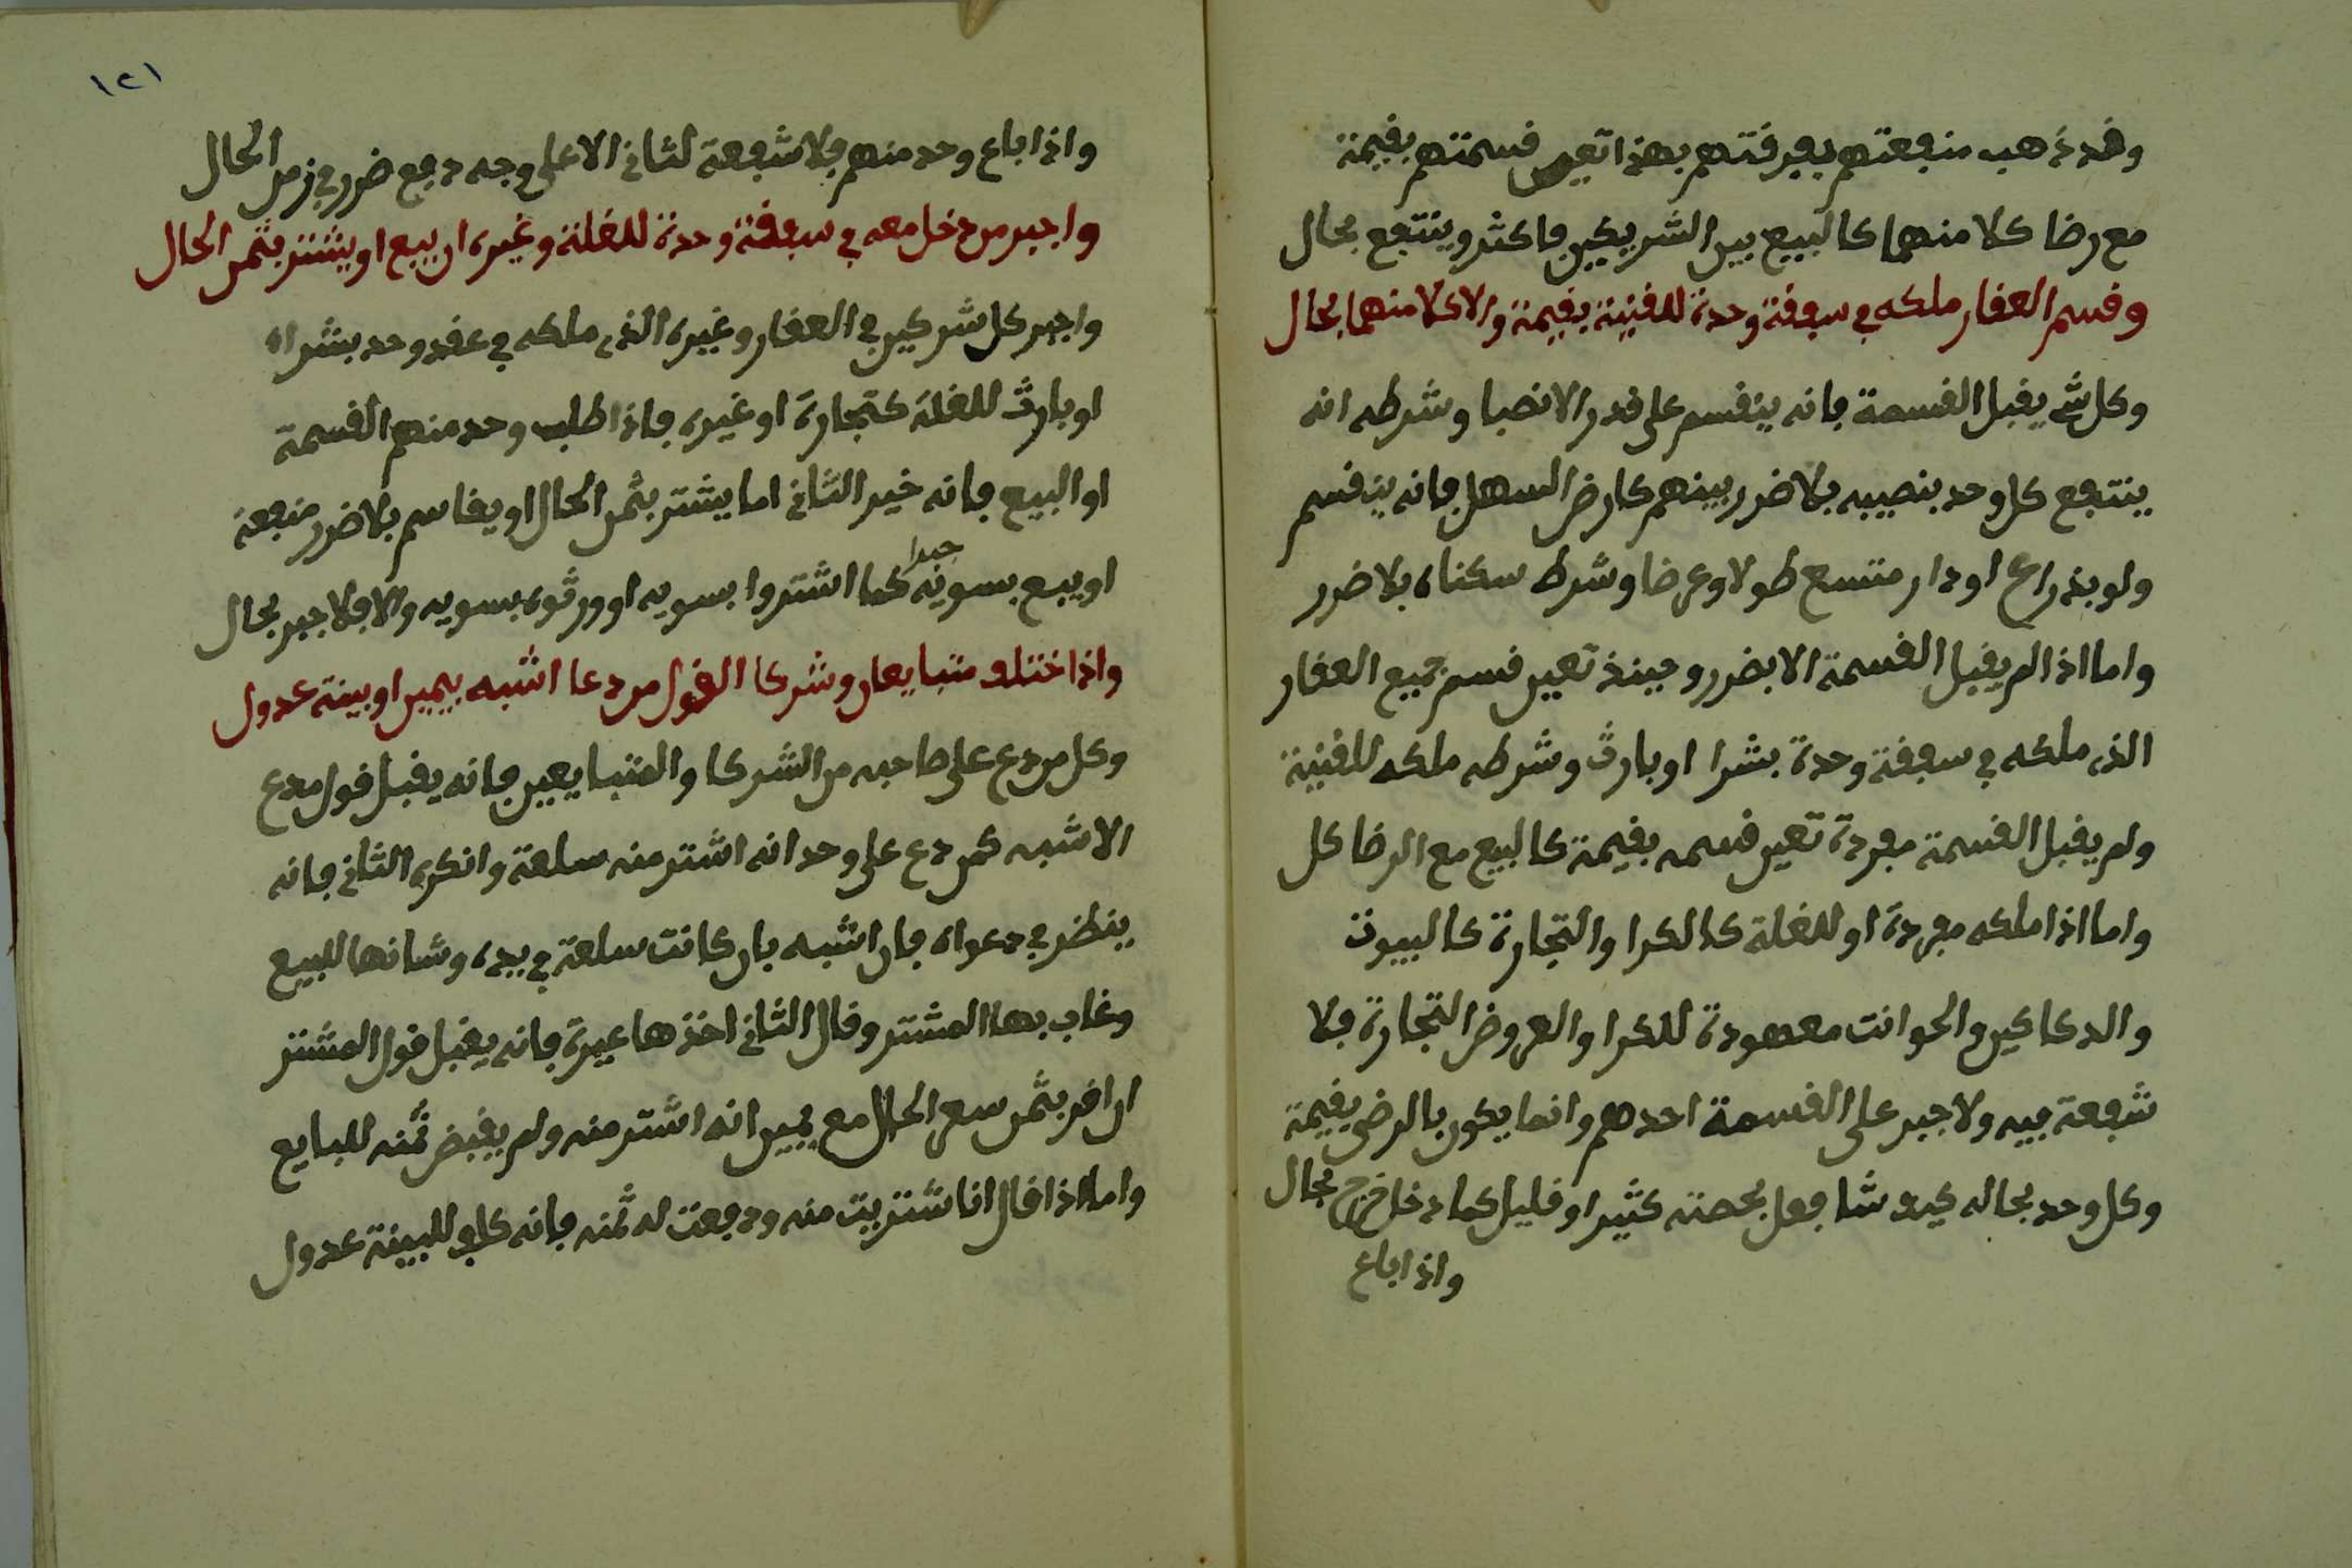 وقد ذهب منفعتهم بفرقتهم بهذا تعين قسمتهم بقيمة
مع رضا كلا منهما كالبيع بين الشريكين فاكثر وينتفع بحال
وقسم العقار ملكه في سبقة وحدة للقنية بقيمة والا كلا منهما بحال
وكل شي يقبل القسمة فانه ينقسم على قدر الانصبا وشرطه انه
ينتفع كل وحد بنصيبه بلا ضرر بينهم كارض السهل فانه ينقسم
ولو بذراع او دار متسع طولا وعرضا وشرط سكناه بلا ضرر
واما اذا لم يقبل القسمة الا بضرر وحينذ تعين قسم جميع العقار
الذي ملكه في سبقة وحدة بشرا او بارث وشرطه ملكه للقنية
ولم يقبل القسمة مفردة تعين قسمه بقيمة كالبيع مع الرضا كل
واما اذا ملكه مفردة او للغلة كالكرا والتجارة كالبيوت
والدكاكين والحوانت معهودة للكرا والعروض التجارة فلا
شفعة فيه ولا جبر على القسمة احدهم وانما يكون بالرضى بقيمة
وكل وحد بحاله كيف شا فعل بحصته كثيرا او قليل كما دخل خرج بحال
واذا باع
١٢١
واذا باع وحد منهم فلا شفعة لثاني الا على وجه دفع ضرر في زمن الحال
واجبر من دخل معه في سبقة وحدة للغلة وغيره ان يبيع او يشتر بثمن الحال
واجبر كل شركين في العقار وغيره الذي ملكه في عقد وحد بشراه
او بارث للغلة كتجارة او غيره فاذا طلب وحد منهم القسمة
او البيع فانه خير الثاني اما يشتر بثمن الحال او يقاسم بلا ضرر منفعة
او يبيع بسوية جبرا كما اشتروا بسويه او ورثوه بسويه والا فلا جبر بحال
واذا ختلف متبايعان وشركا القول من دعا اشبه بيمين او بينة عدول
وكل من دع على صاحبه من الشركا والمتبايعين فانه يقبل قول مدع
الاشبه كمن دع على وحد انه اشتر منه سلعة وانكره الثاني فانه
ينظر في دعواه فان اشبه بان كانت سلعة في يده وشانها للبيع
وغاب بها المشتر وقال الثاني اخذها عيرة فانه يقبل قول المشتر
ان اقر بثمن سعر الحال مع يمين انه اشتر منه ولم يقبض ثمنه للبايع
واما اذا قال انا شتريت منه ودفعت له ثمنه فانه كلف للبينة عدول